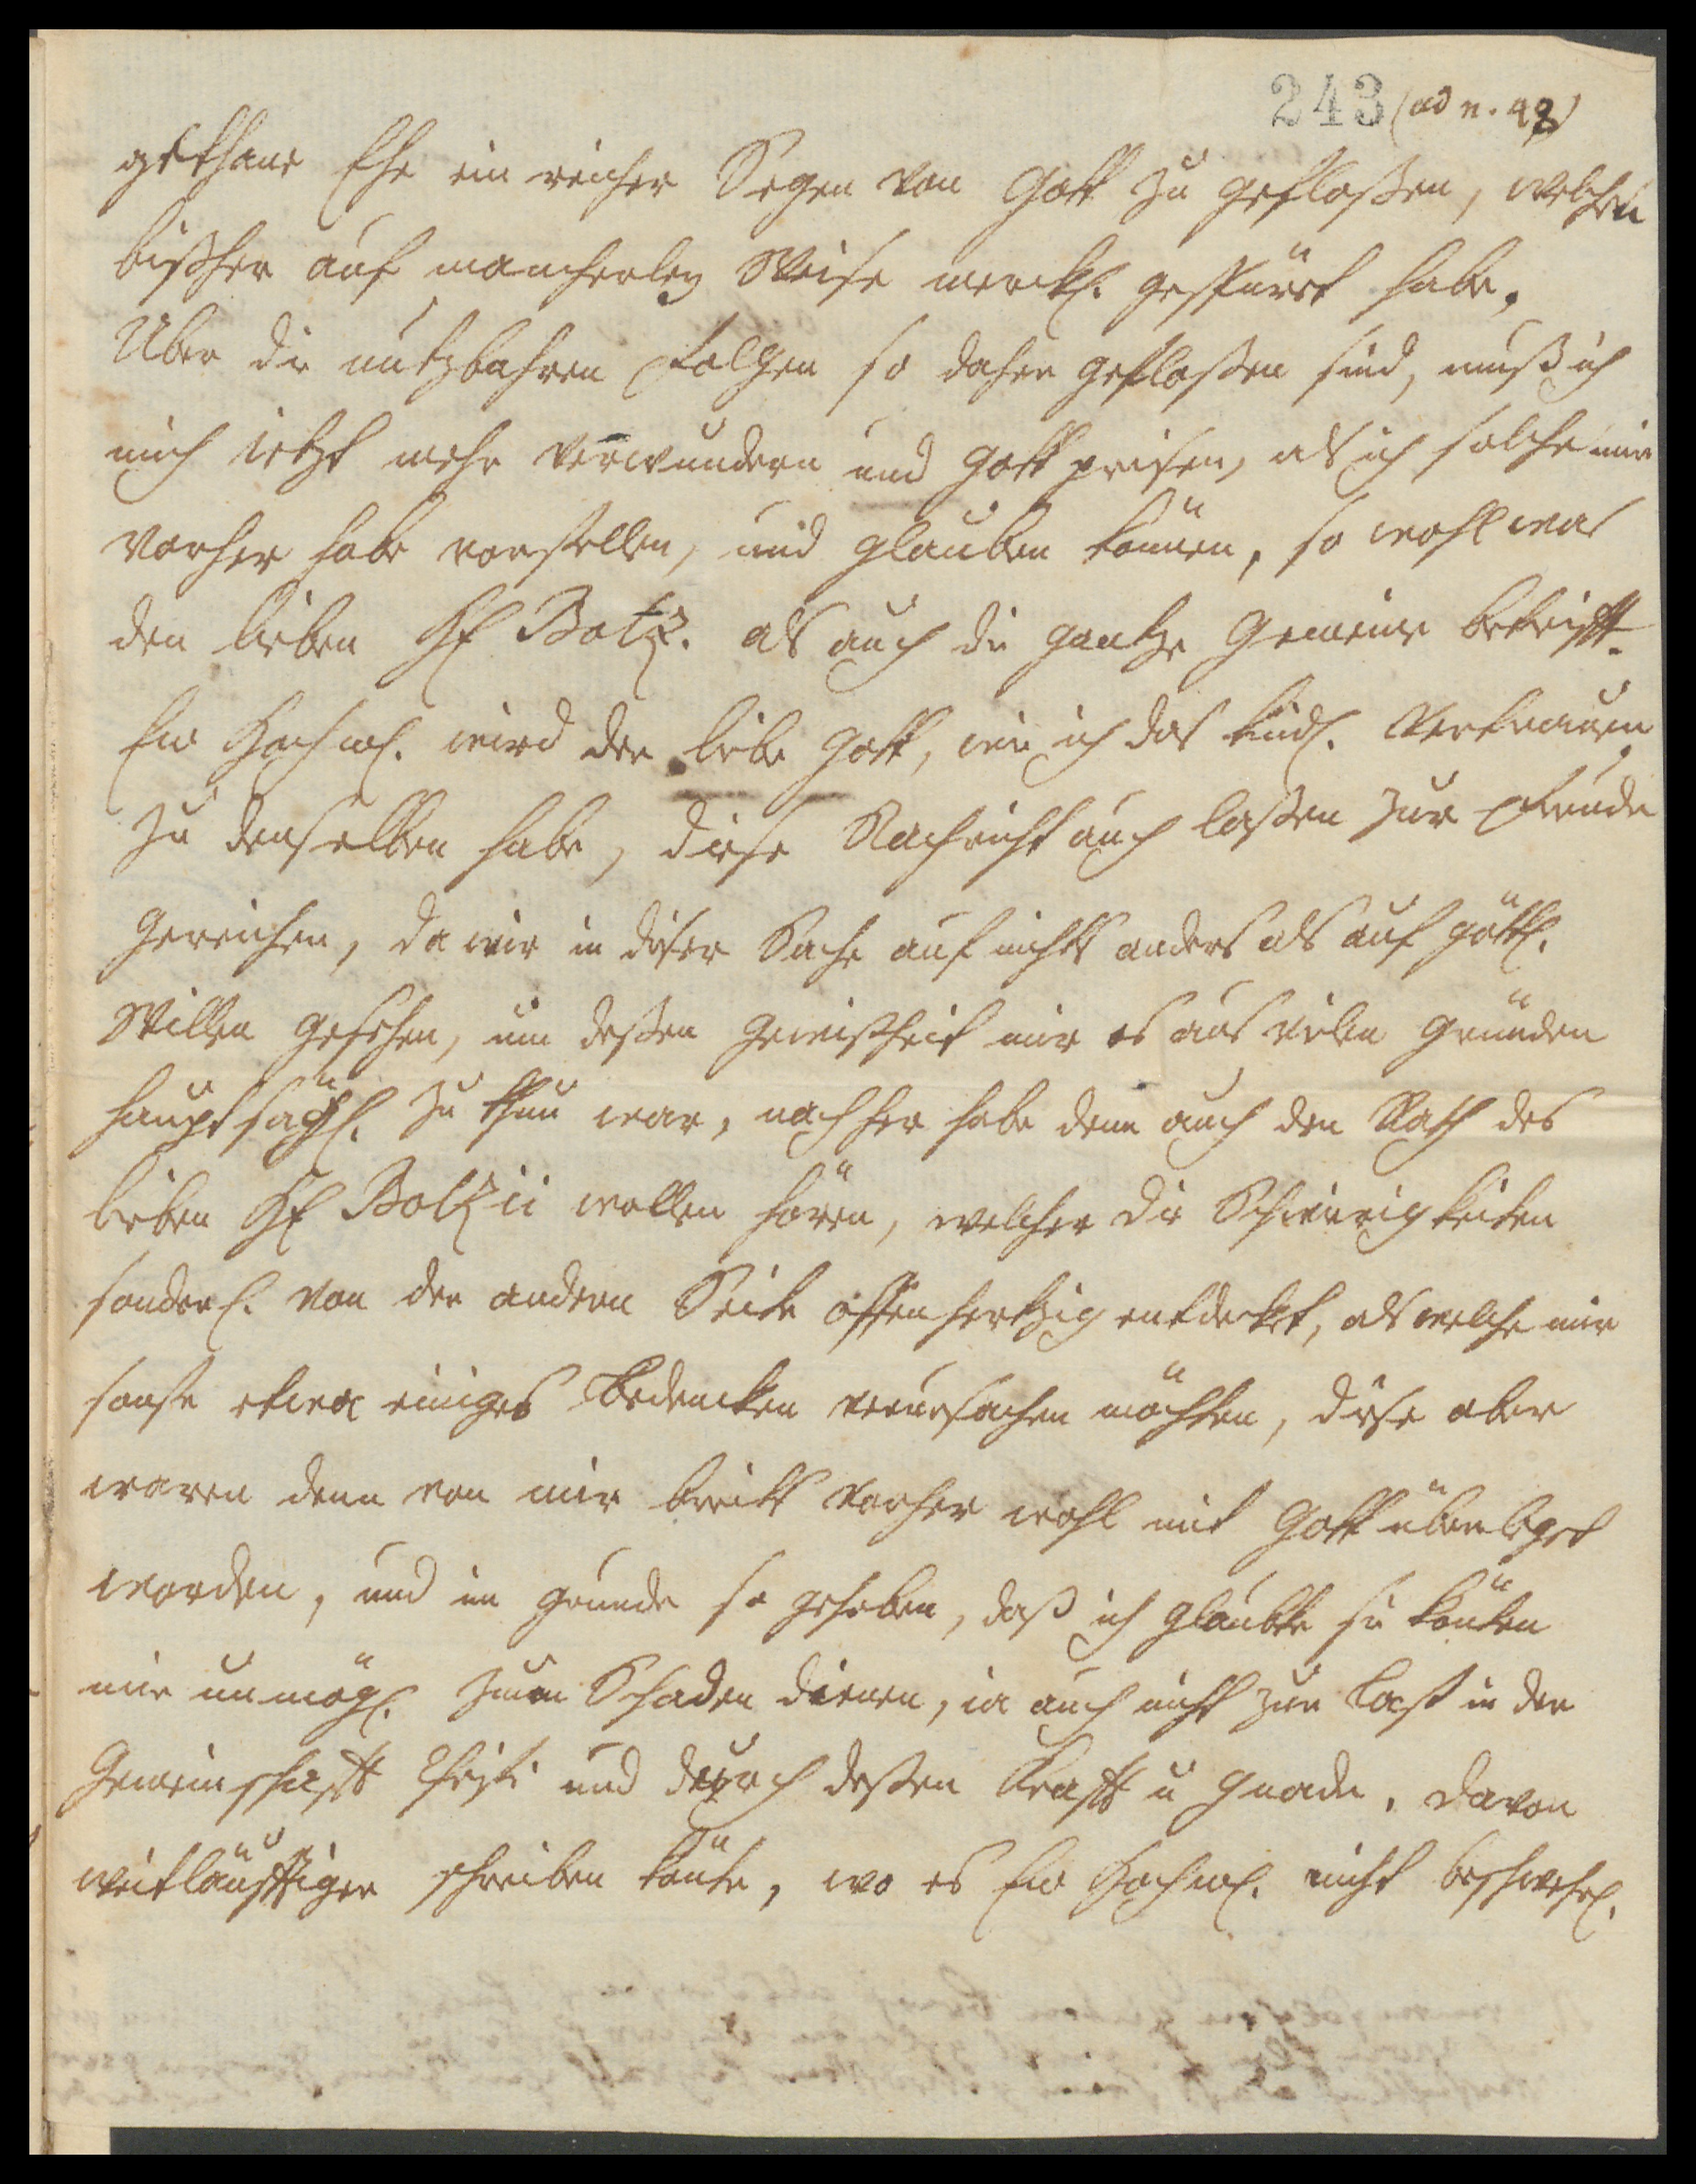 243 (ad n. 48)
gethane Ehe ein reicher Segen von Gott zu gefloßen, welchen
bißher auf mancherley Weise merckl. gespüret habe.
Uber die nutzbahren Folgen so daher gefloßen sind, muß ich
mich ietzt mehr verwundern und Gott preisen, als ich solche mir
vorher habe vorstellen, und glauben können, so wohl was
den lieben HE Boltz. als auch die gantze Gemeine betrifft.
Ew Hochw. wird der liebe Gott, wie ich das kindl. Vertrauen
zu denselben habe, diese Nachricht auch laßen zur Freude
gereichen, da wir in dieser Sache auf nichts anders als auf göttl.
Willen gesehen, um deßen Gewißheit mir es aus vielen Gründen
hauptsächl. zu thun war, nachher habe denn auch den Rath des
lieben HE Boltzii wollen hören, welcher die Schwierigkeiten
sonderl. von der andern Seite offenhertzig entdecket, als welche mir
sonst etwa einiges Bedencken verursachen möchten, diese aber
waren denn von mir breits vorher wohl mit Gott überleget
worden, und im Grunde so gehoben, daß ich glaubte sie könten
mir unmögl. zum Schaden dienen, ia auch nicht zur Last in der
Gemeinschafft Christi und durch deßen Krafft u Gnade. davon
weitläufftiger schreiben könte, wo es Ew Hochw. nicht beschwehrl.